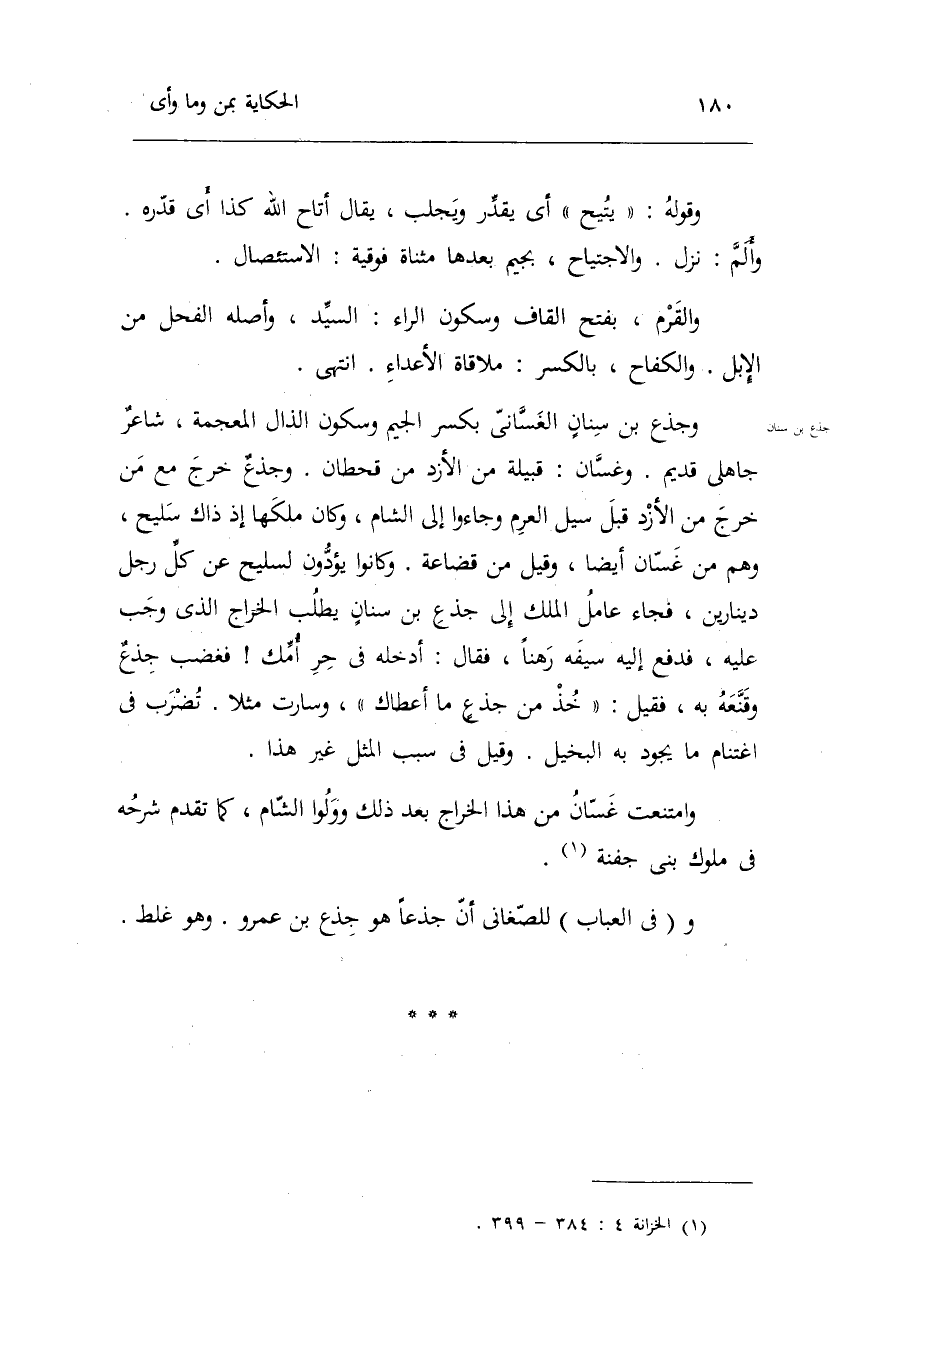 ١٨٠ الحكاية بمن وما وأى
وقولهُ : « يتُيح » أى يقدِّر ويَجلب ، يقال أتاح الله كذا أُى قدّره .
وأَلمَّ : نزل . والاجتياح ، بجيم بعدها مثناة فوقية : الاستئصال .
والقَرْم ، بفتح القاف وسكون الراء : السيِّد ، وأصله الفحل من
الإبل . والكفاح ، بالكسر : ملاقاة الأعداءِ . انتهى .
وجذع بن سِنانٍ الغَسَّانىّ بكسر الجيم وسكون الذال المعجمة ، شاعرٌ
جذع بن سنان
جاهلى قديم . وغسَّان : قبيلة من الأزد من قحطان . وجذعٌ خرجَ مع مَن
خرجَ من الأزْد قبلَ سيل العرِم وجاءوا إلى الشام ، وكان ملكَها إذ ذاك سَليح ،
وهم من غَسّان أيضا ، وقيل من قضاعة . وكانوا يؤدُّون لسليح عن كلِّ رجل
دينارين ، فجاء عاملُ الملك إلى جذع بن سنانٍ يطلُب الخراج الذى وجَب
عليه ، فدفع إليه سيفَه رَهناً ، فقال : أدخله فى حِرِ أُمِّك ! فغضب جِذعٌ
وقَنَّعَهُ به ، فقيل : « خُذْ من جذعٍ ما أعطاك » ، وسارت مثلا . تُضْرَب فى
اغتنام ما يجود به البخيل . وقيل فى سبب المثل غير هذا .
وامتنعت غَسّانُ من هذا الخراج بعد ذلك ووَلُوا الشّام ، كما تقدم شرحُه
فى ملوك بنى جفنة (١) .
و ( فى العباب ) للصّغانى أنّ جذعاً هو جِذع بن عمرو . وهو غلط .
* * *
(١) الخزانة ٤ : ٣٨٤ – ٣٩٩ .